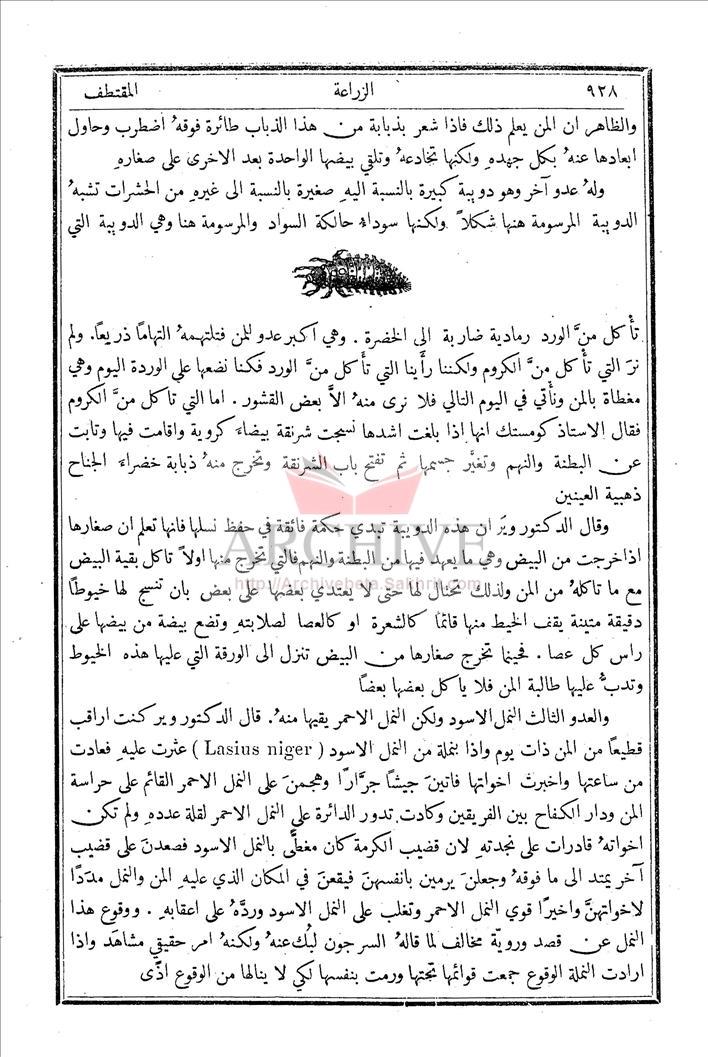 ٩٢٨ الزراعة المقتطف
والظاهر ان المن يعلم ذلك فاذا شعر بذبابة من هذا الذباب طائرة فوقهُ اضطرب وحاول
ابعادها عنهُ بكل جهدهِ ولكنها تخادعهُ وتلقي بيضها الواحدة بعد الاخرى على صغارهِ
ولهُ عدو آخر وهو دويبة كبيرة بالنسبة اليهِ صغيرة بالنسبة الى غيرهِ من الحشرات تشبهُ
الدويبة المرسومة هنها شكلاً ولكنها سوداء حالكة السواد والمرسومة هنا وهي الدويبة التي
تأْكل منَّ الورد رمادية ضاربة الى الخضرة . وهي اكبر عدو للمن فتلتهمهُ التهامًا ذريعًا. ولم
نرَ التي تأْكل منَّ الكروم ولكننا رأَينا التي تأْكل منَّ الورد فكنا نضعها على الوردة اليوم وهي
مغطاة بالمن ونأْتي في اليوم التالي فلا نرى منهُ الاَّ بعض القشور . اما التي تاكل منَّ الكروم
فقال الاستاذ كومستك انها اذا بلغت اشدها نسجت شرنقة بيضاءَ كروية واقامت فيها وتابت
عن البطنة والنهم وتغيَّر جسمها ثم تفتح باب الشرنقة وتخرج منهُ ذبابة خضراءَ الجناح
ذهبية العينين
وقال الدكتور ويَر ان هذه الدويبة تبدي حكمة فائقة في حفظ نسلها فانها تعلم ان صغارها
اذا خرجت من البيض وهي ما يعهد فيها من البطنة والنهم فالتي تخرج منها اولاً تاكل بقية البيض
مع ما تاكلهُ من المن ولذلك تحتال لها حتى لا يعتدي بعضها على بعض بان تنسج لها خيوطًا
دقيقة متينة يقف الخيط منها قائمًا كالشعرة او كالعصا لصلابتهِ وتضع بيضة من بيضها على
راس كل عصا . فحينما تخرج صغارها من البيض تنزل الى الورقة التي عليها هذه الخيوط
وتدبُّ عليها طالبة المن فلا ياكل بعضها بعضًا
والعدو الثالث النمل الاسود ولكن النمل الاحمر يقيها منهُ. قال الدكتور وير كنت اراقب
قطيعًا من المن ذات يوم واذا بنملة من النمل الاسود ( Lasius niger ) عثرت عليهِ فعادت
من ساعتها واخبرت اخواتها فاتينَ جيشًا جرَّارًا وهجمنَ على النمل الاحمر القائم على حراسة
المن ودار الكفاح بين الفريقين وكادت تدور الدائرة على النمل الاحمر لقلة عددهِ ولم تكن
اخواتهُ قادرات على نجدتهِ لان قضيب الكرمة كان مغطًّى بالنمل الاسود فصعدنَ على قضيب
آخر يمتد الى ما فوقهُ وجعلنَ يرمين بانفسهنَّ فيقعنَ في المكان الذي عليهِ المن والنمل مدَدًا
لاخواتهنَّ واخيرًا قوي النمل الاحمر وتغلب على النمل الاسود وردَّهُ على اعقابهِ . ووقوع هذا
النمل عن قصد ورويَّة مخالف لما قالهُ السر جون لبُك عنهُ ولكنهُ امر حقيقي مشاهَد واذا
ارادت النملة الوقوع جمعت قوائمها تحتها ورمت بنفسها لكي لا ينالها من الوقوع اذًى
ARCHIVE
http://Archivebeta.Sakhrit.com